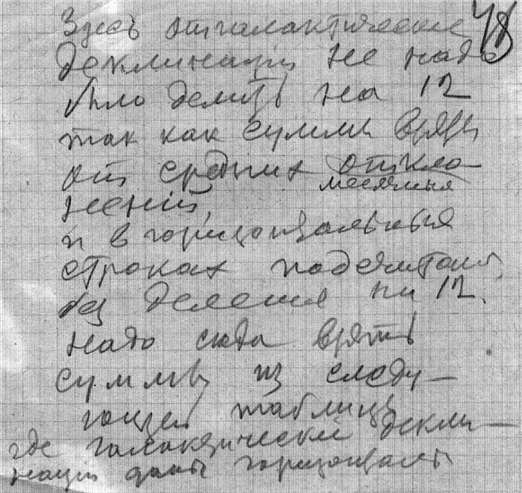 Здесь от галактические 48
деклинации не надо
было делить на 12
так как суммы взяты
от средних откло-
месячных
нений,
и в горизонтальных
строках
без деления на 12.
Надо сюда взять
суммы из следу-
ющей таблицы
где галактической декли-
нации даны горизонталы